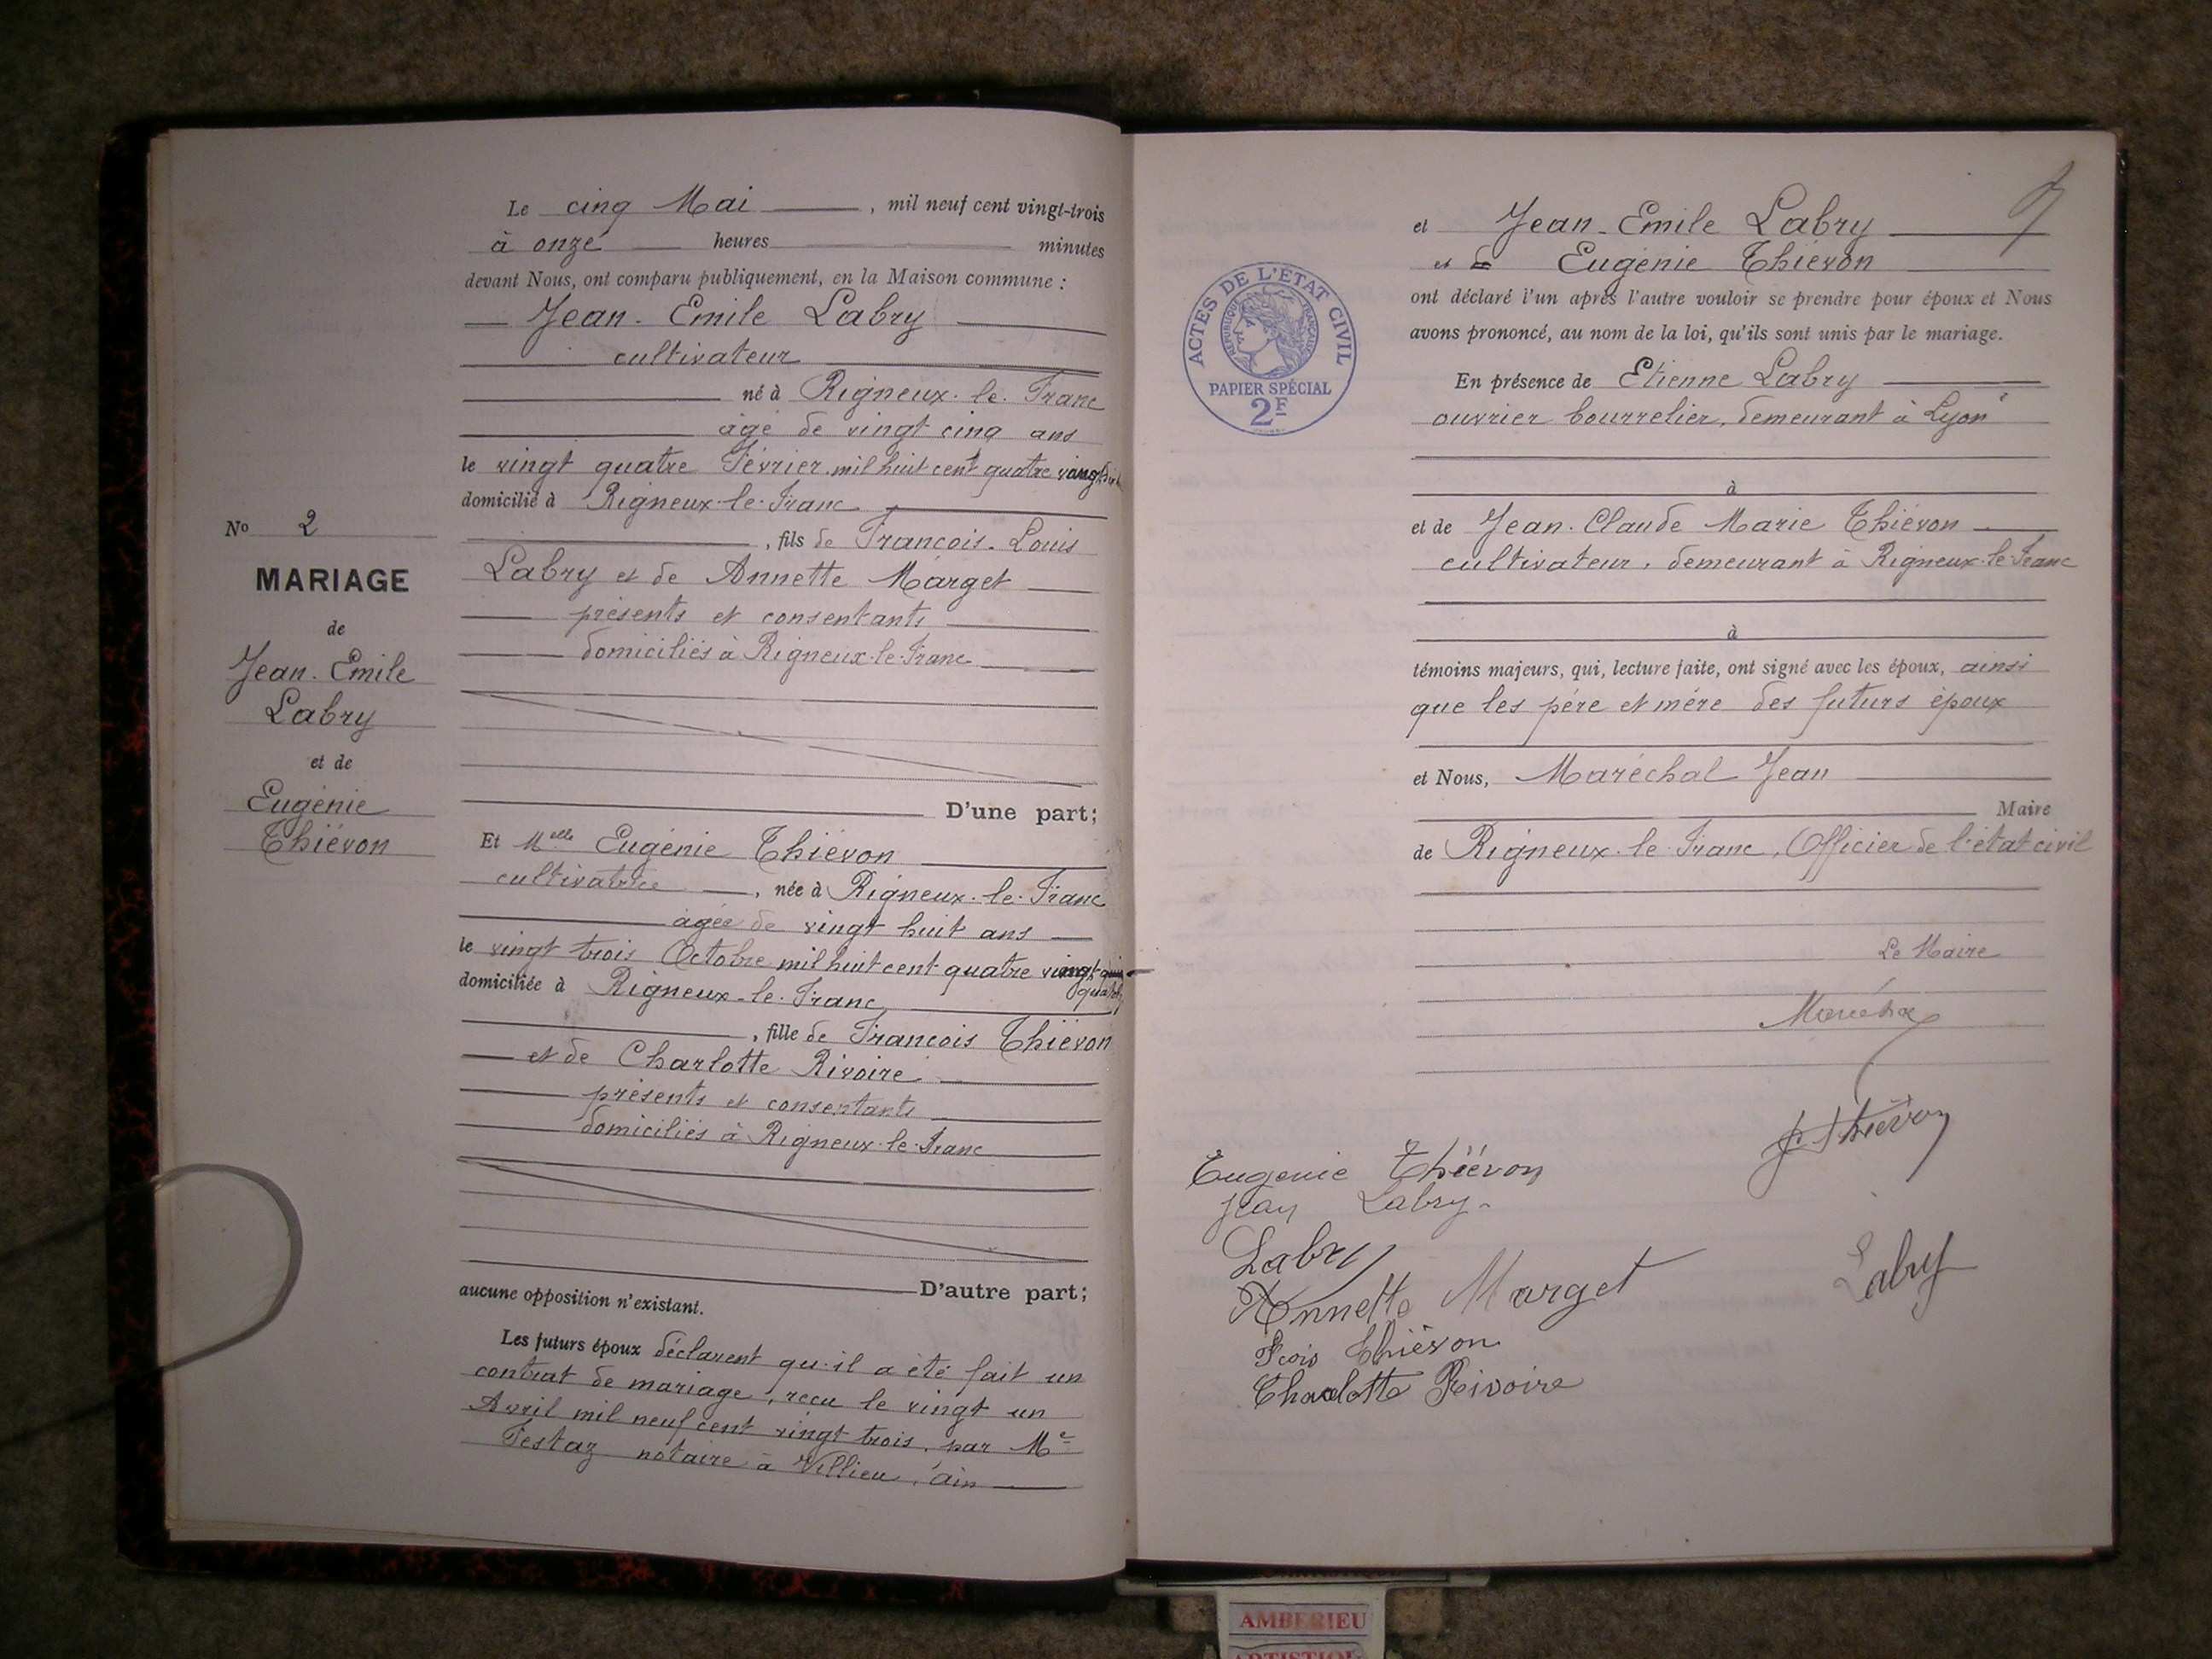 Le cinq Mai , mil neuf cent vingt-trois
à onze heures minutes
devant Nous, ont comparu publiquement, en la Maison commune :
Jean-Emile Labry
cultivateur
né à Rigneux-le-Franc
âgé de vingt cinq ans
le vingt quatre Février mil huit cent quatre vingt
domicilié à Rigneux-le-Franc
, fils de François-Louis
Labry et de Annette Marget
présents et consentants
domiciliés à Rigneux-le-Franc
D'une part;
No 2
MARIAGE
de
Jean-Emile
Labry
et de
Eugénie
Thiévon
Et Melle Eugénie Thiévon
cultivatrice , née à Rigneux-le-Franc
âgée de vingt huit ans
le vingt trois Octobre mil huit cent quatre vingt
domiciliée à Rigneux-le-Franc
, fille de François Thiévon
et de Charlotte Rivoire
présents et consentants
domiciliés à Rigneux-le-Franc
D'autre part;
aucune opposition n'existant.
Les futurs époux déclarent qu'il a été fait un
contrat de mariage, reçu le vingt un
Avril mil neuf cent vingt trois, par Me
Festaz notaire à Villieu, ain
ACTES DE L'ÉTAT CIVIL
RÉPUBLIQUE FRANÇAISE
PAPIER SPÉCIAL
2F
et Jean-Emile Labry
et Eugénie Thiévon
ont déclaré l'un après l'autre vouloir se prendre pour époux et Nous
avons prononcé, au nom de la loi, qu'ils sont unis par le mariage.
En présence de Etienne Labry
ouvrier bourrelier, demeurant à Lyon
à
et de Jean-Claude Marie Thiévon
cultivateur, demeurant à Rigneux-le-Franc
à
témoins majeurs, qui, lecture faite, ont signé avec les époux, ainsi
que les père et mère des futurs époux
et Nous, Maréchal Jean
Maire
de Rigneux-le-Franc, Officier de l'état civil
Le Maire
Maréchal
Thiévon
Eugenie Thiévon
Jean Labry
Labry
Labry
Annette Marget
Fcois Thiévon
Charlotte Rivoire
AMBERIEU
ARTISTIQUE